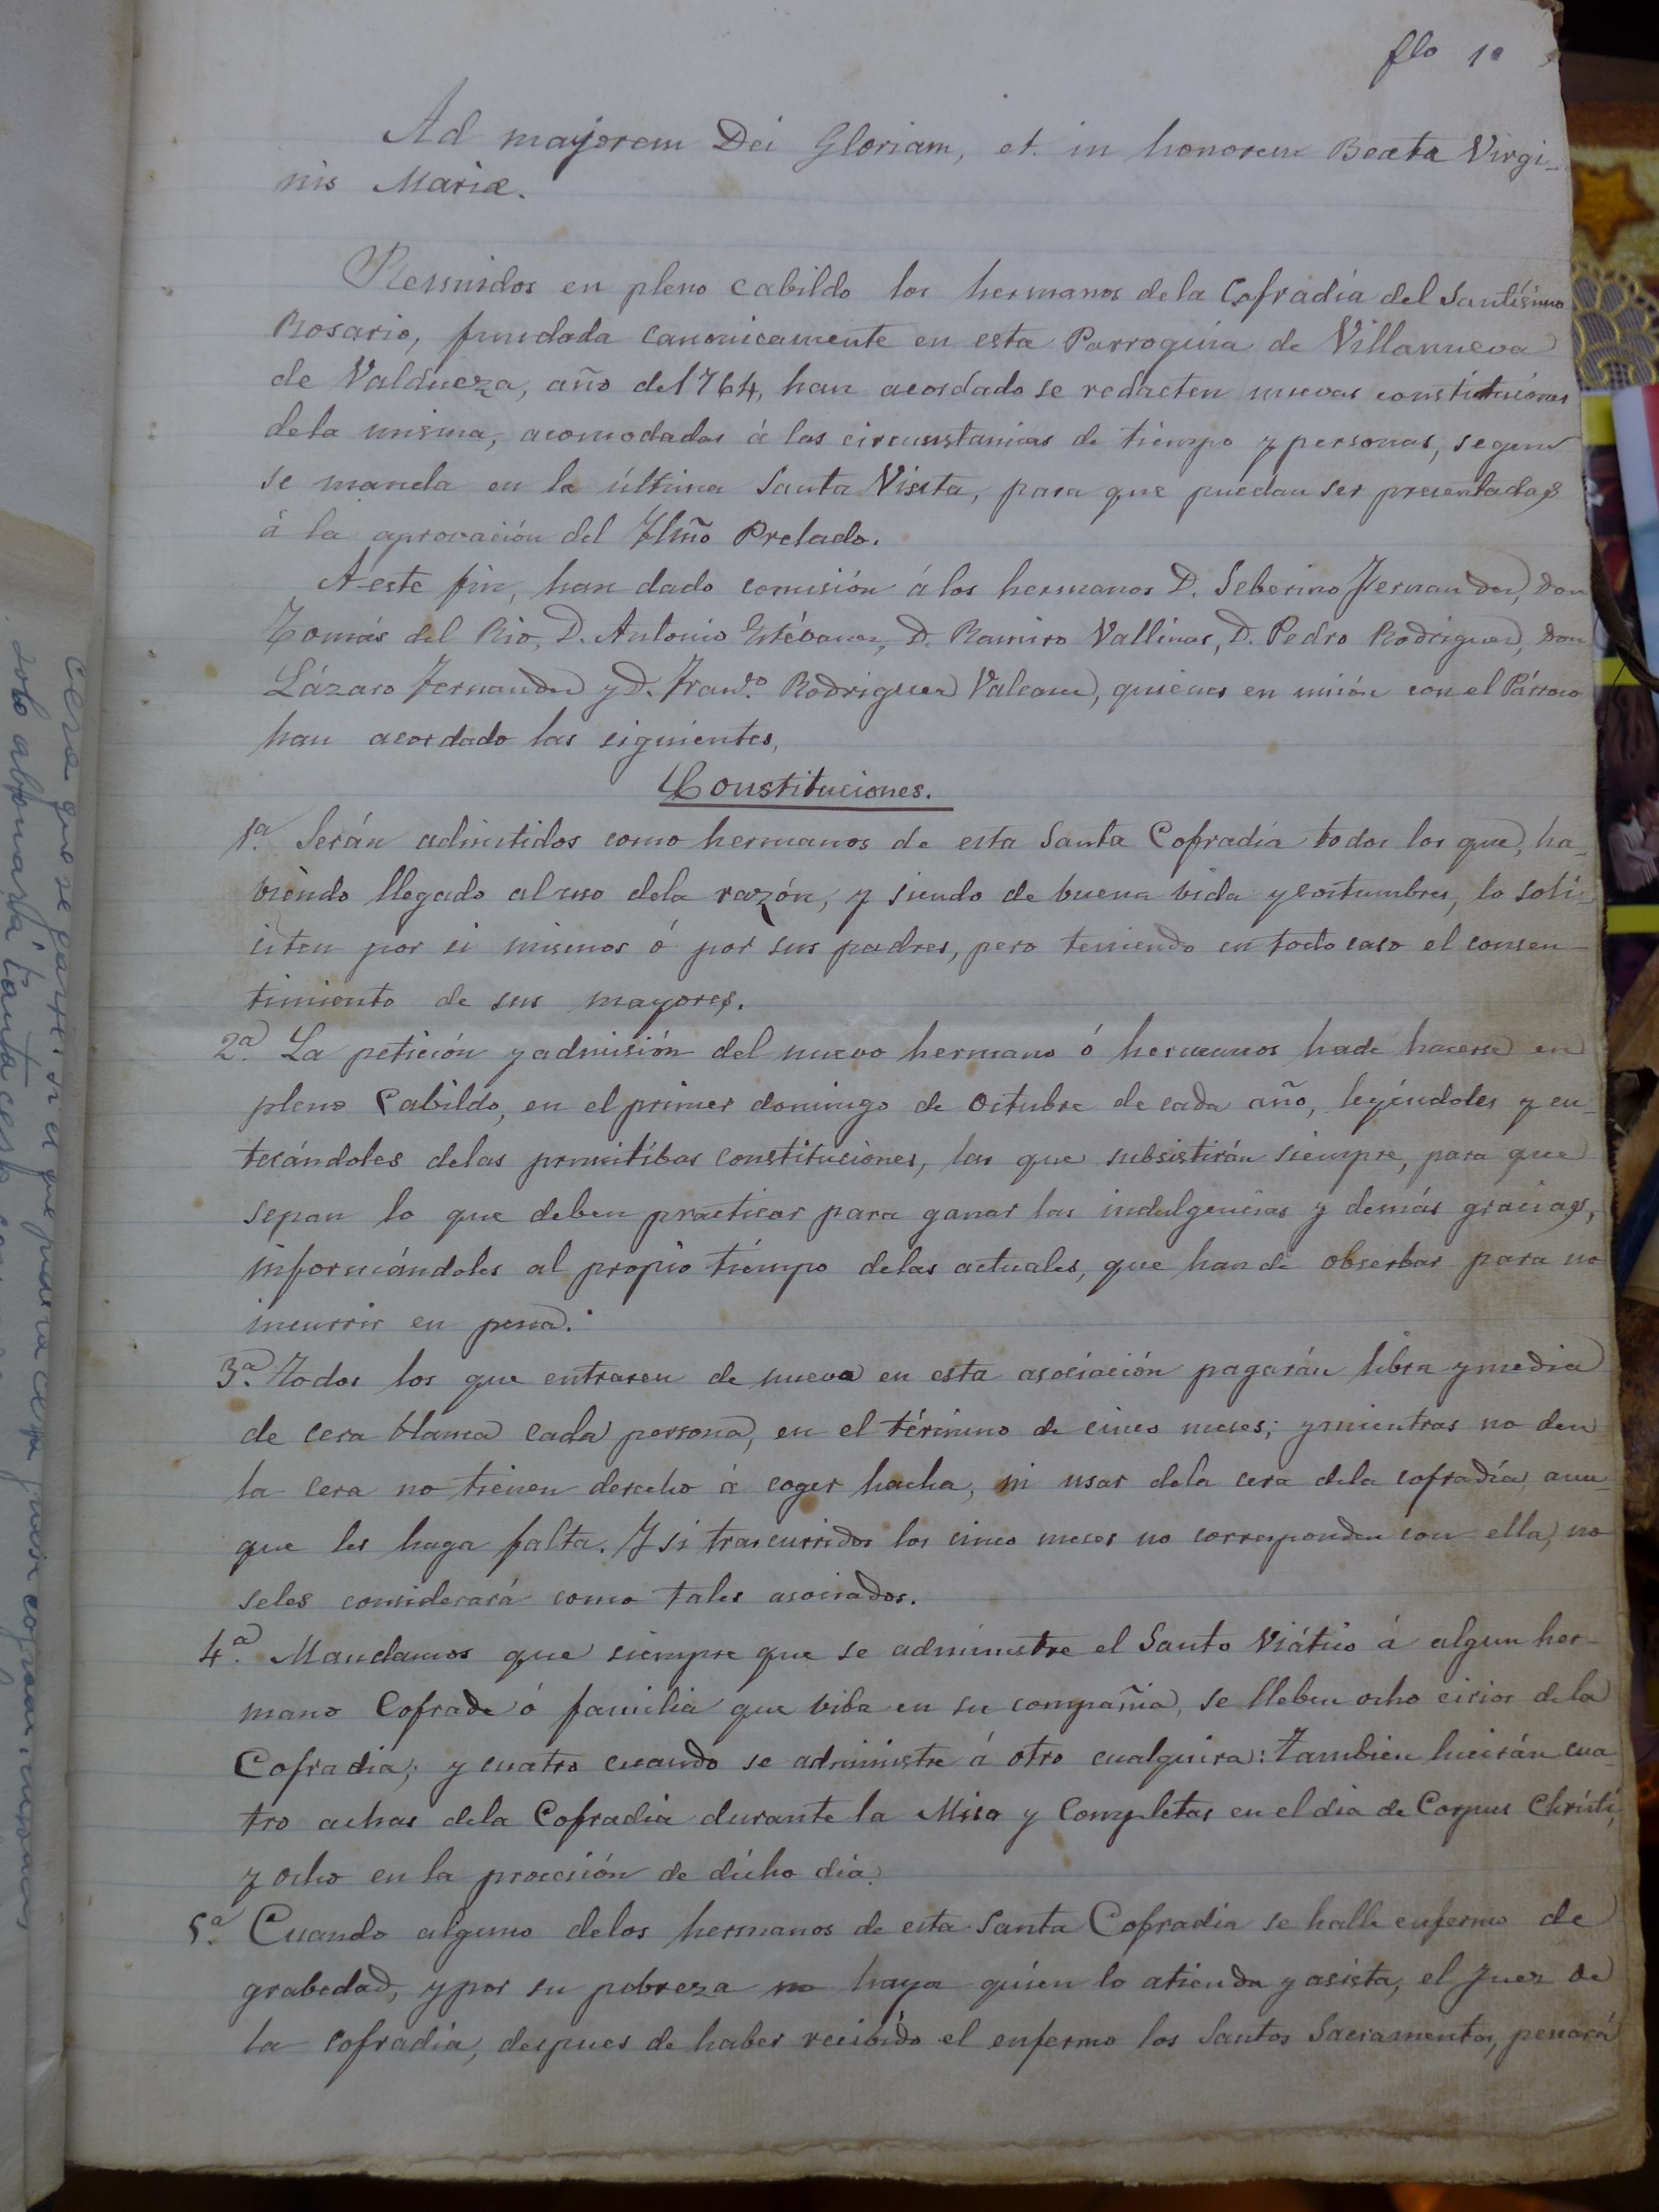 flo 1º
Ad mayorem Dei Gloriam, et in honorem Beata Virgi-
nis Mariæ.
Reunidos en pleno cabildo los hermanos de la Cofradía del Santísimo
Rosario, fundada canonicamente en esta Parroquia de Villanueva
de Valdueza, año de 1764, han acordado se redacten nuevas constituciones
de la misma, acomodadas á las circunstancias de tiempo y personas, segun
se manda en la última Santa Visita, para que puedan ser presentadas
á la aprovación del Ylmõ Prelado.
A este fin, han dado comisión á los hermanos D. Seberino Fernandez, Don
Tomás del Rio, D. Antonio Estévanez, D. Ramiro Vallinas, D. Pedro Rodriguez, Don
Lázaro Fernandez y D. Franco. Rodriguez Valcarce, quienes en unión con el Párroco
han acordado las siguientes,
Constituciones.
1ª. Serán admitidos como hermanos de esta Santa Cofradía todos los que, ha-
viendo llegado al uso dela razón, y siendo de buena vida y costumbres, lo soli-
citen por si mismos ó por sus padres, pero teniendo en todo caso el consen-
timiento de sus mayores.
2ª. La petición y admisión del nuevo hermano ó hermanos hade hacerse en
pleno Cabildo, en el primer domingo de Octubre de cada año, leyéndoles y en-
terándoles delas primitibas constituciones, las que subsistirán siempre, para que
sepan lo que deben practicar para ganar las indulgencias y demás gracias,
informándoles al propio tiempo delas actuales, que han de obserbar para no
incurrir en pena.
3ª. Todos los que entraren de nuevo en esta asociación pagarán libra y media
de cera blanca cada persona, en el término de cinco meses; y mientras no den
la cera no tienen derecho á coger hacha, ni usar dela cera dela cofradía, aun-
que les haga falta. Y si trascurridos los cinco meses no corresponden con ella, no
seles considerará como tales asociados.
4ª. Mandamos que siempre que se administre el Santo Viático á algun her-
mano Cofrade ó familia que viba en su compañia, se lleben ocho cirios dela
Cofradia; y cuatro cuando se administre á otro cualquiera: Tambien lucirán cua-
tro achas dela Cofradia durante la Misa y Completas en el dia de Corpus Christi,
y ocho en la procesión de dicho dia.
5ª. Cuando alguno delos hermanos de esta Santa Cofradia se halle enfermo de
grabedad, y por su pobreza no haya quien lo atienda y asista, el Juez de
la cofradía, despues de haber recibido el enfermo los Santos Sacramentos, penará